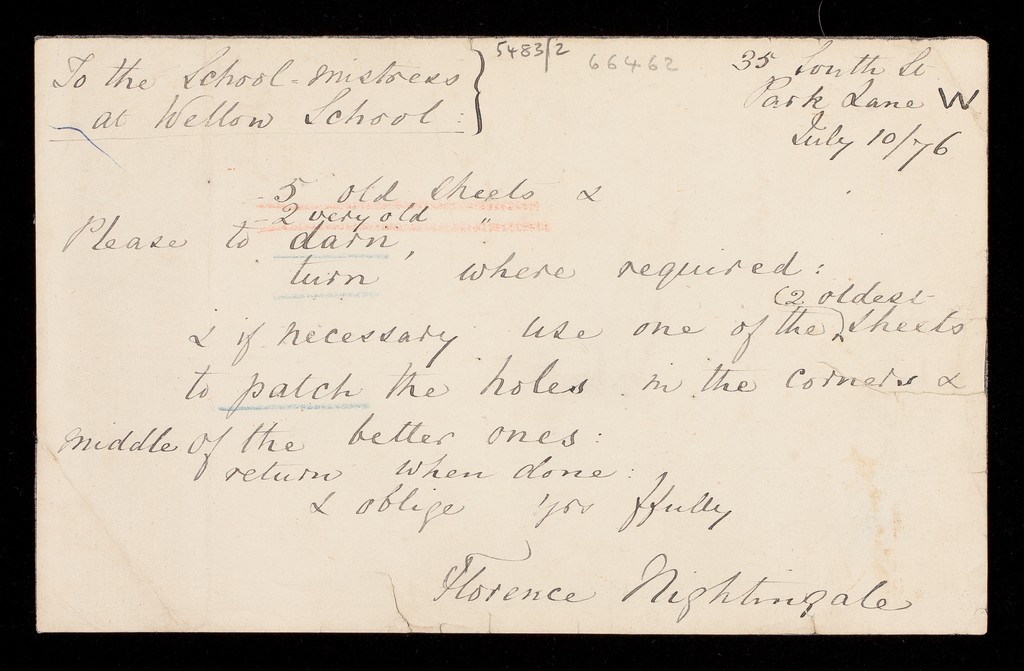 5483/2 66462
To the School-mistress
at Wellow School :
35 South St
Park Lane W
July 10/76
- 5 old sheets &
- 2 very old "
Please to darn,
turn where required :
(2 oldest
& if necessary use one of the) sheets
to patch the holes in the corners &
middle of the better ones :
return when done :
& oblige yrs ffully
Florence Nightingale